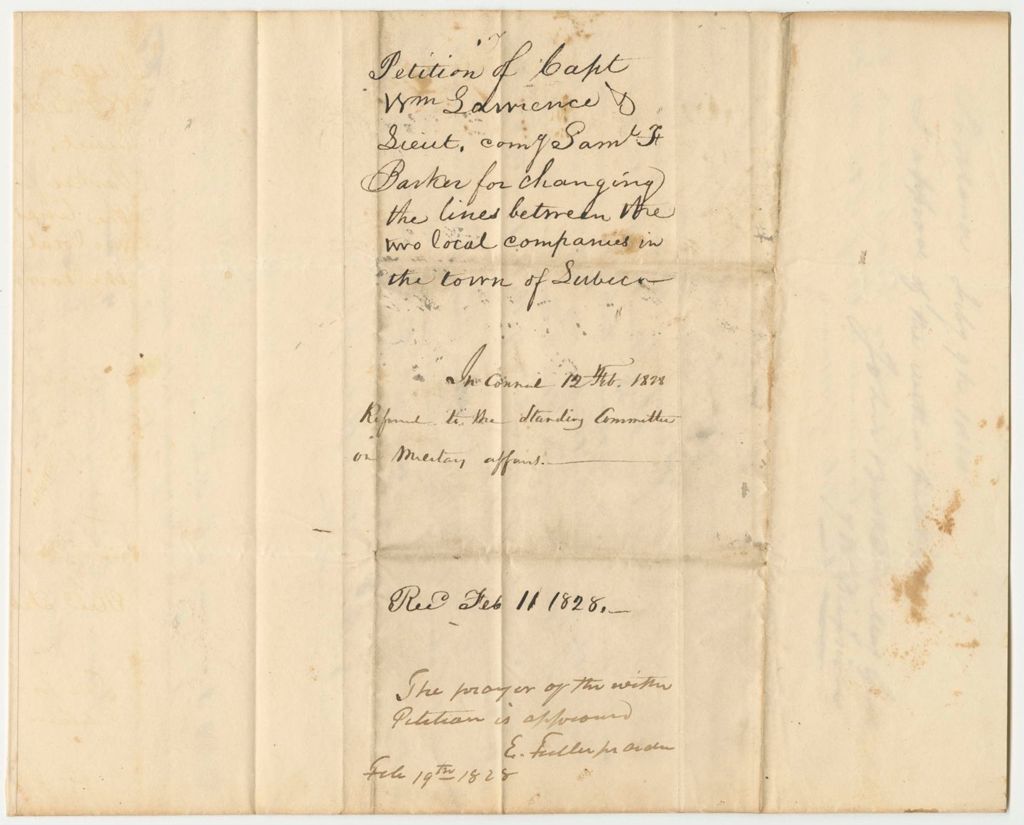 Petition of Capt
Wm Lawrence &
Lieut. comg Saml F
Barker for changing
the lines between the
two local companies in
the town of Lubec
In Council 12 Feb. 1828
Referred to the Standing Committee
on Military affairs.
Recd Feb 11 1828.
The prayer of the within
Petition is approved
E. Fuller
Feb 19th 1828